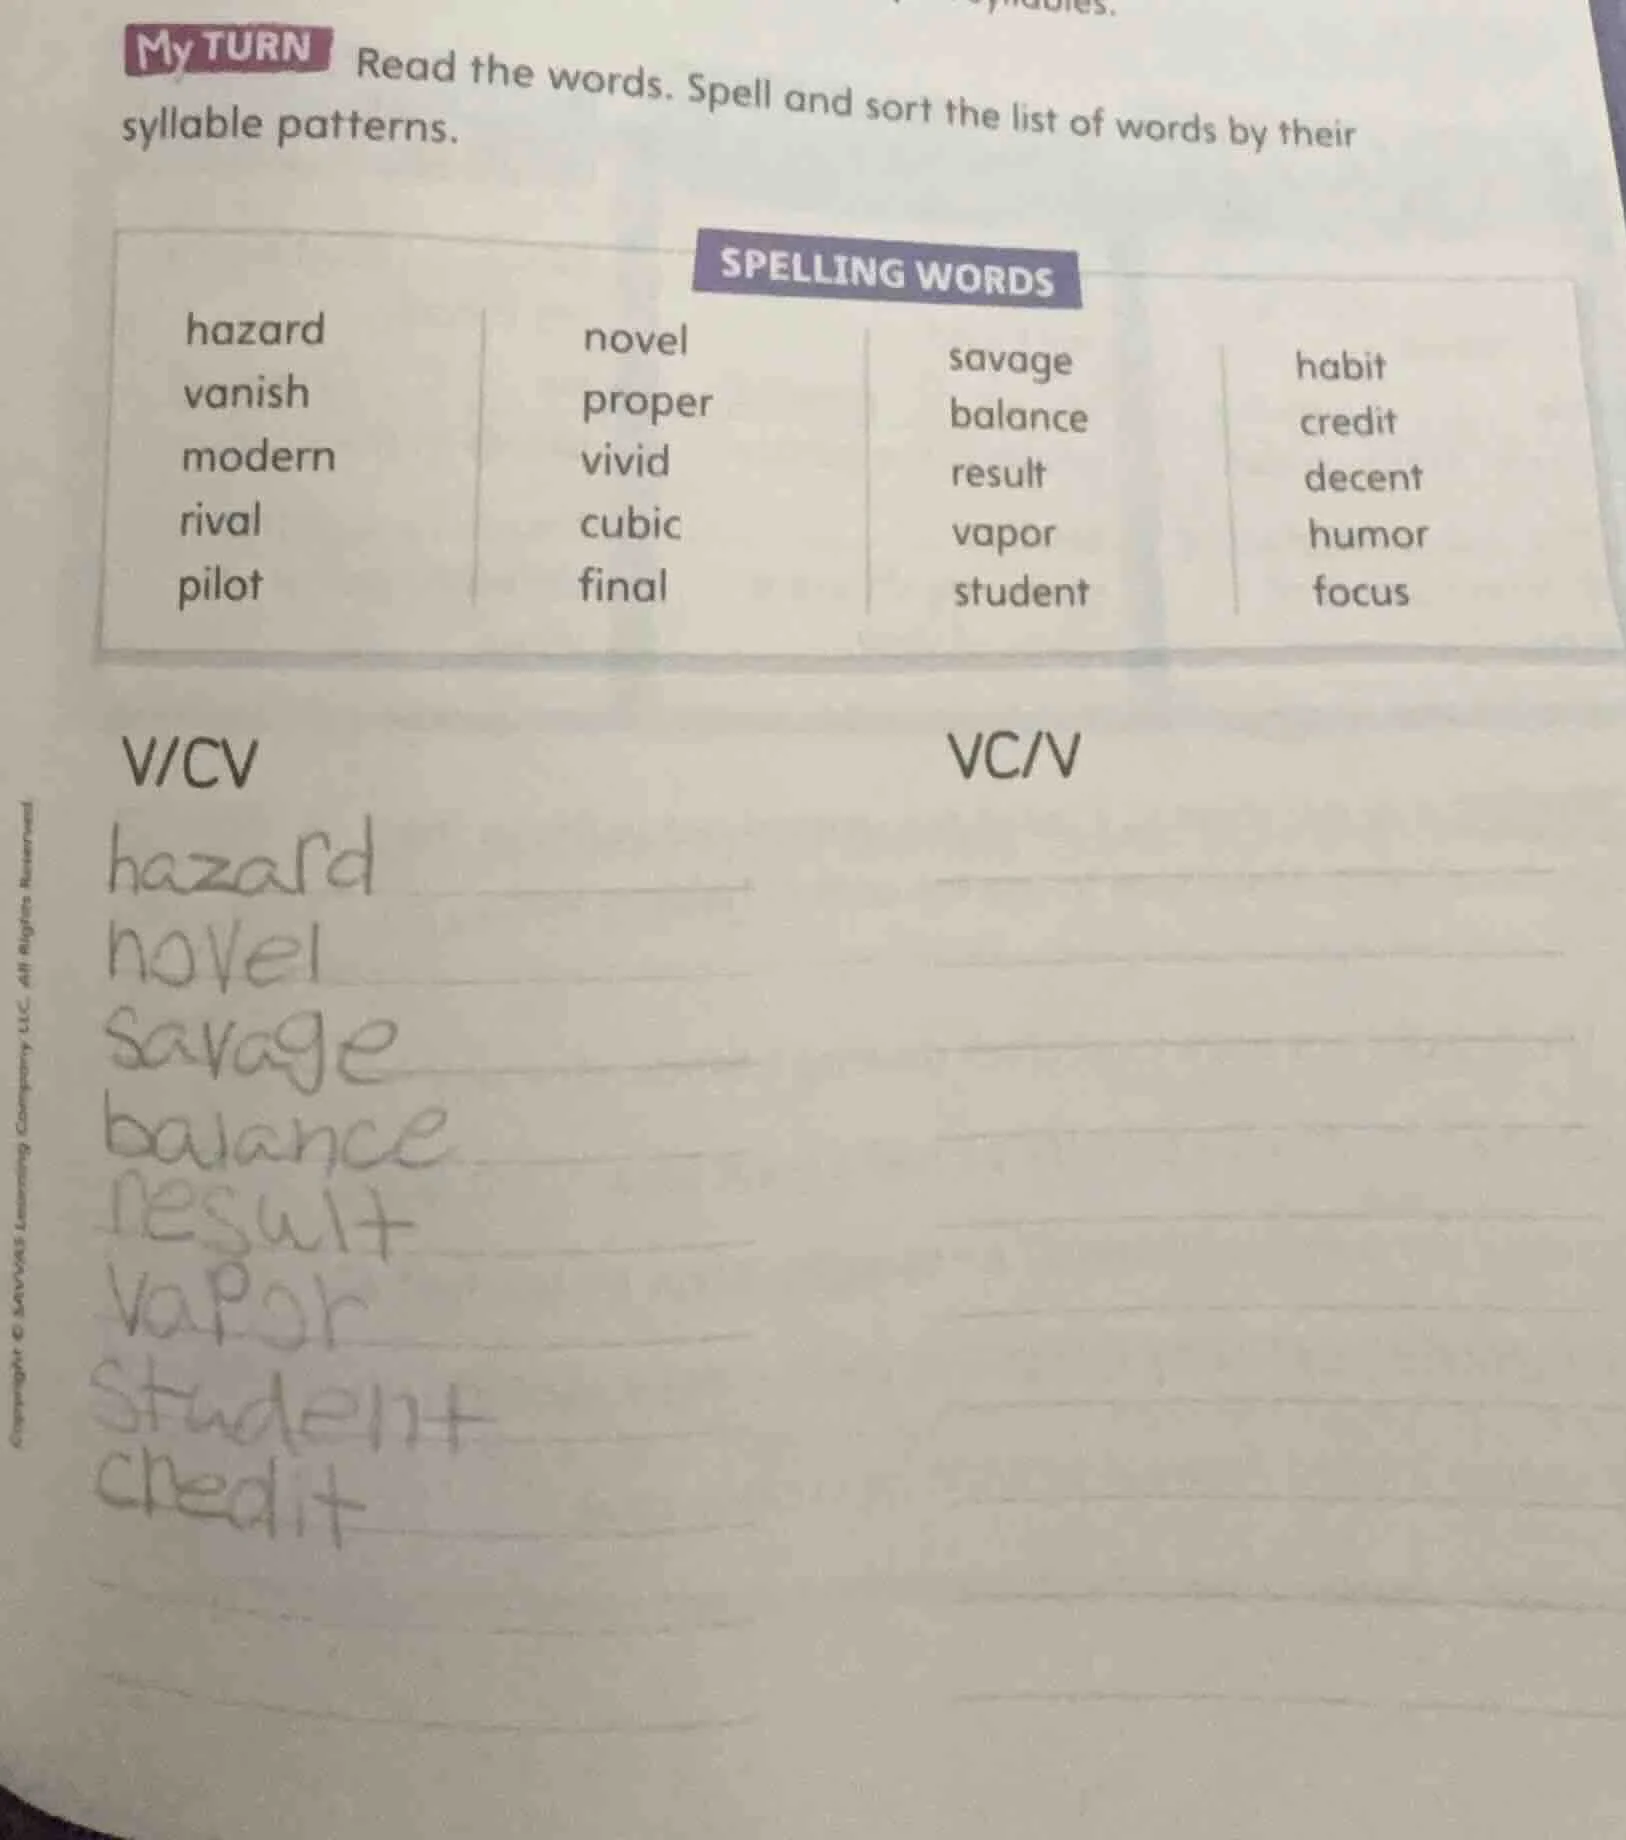 My TURN Read the words. Spell and sort the list of words by their
syllable patterns.
SPELLING WORDS
hazard
vanish
modern
rival
pilot
novel
proper
vivid
cubic
final
savage
balance
result
vapor
student
habit
credit
decent
humor
focus
V/CV
hazard
novel
savage
balance
result
vapor
student
credit
VC/V
Copyright © SAVVAS Learning Company LLC. All Rights Reserved.